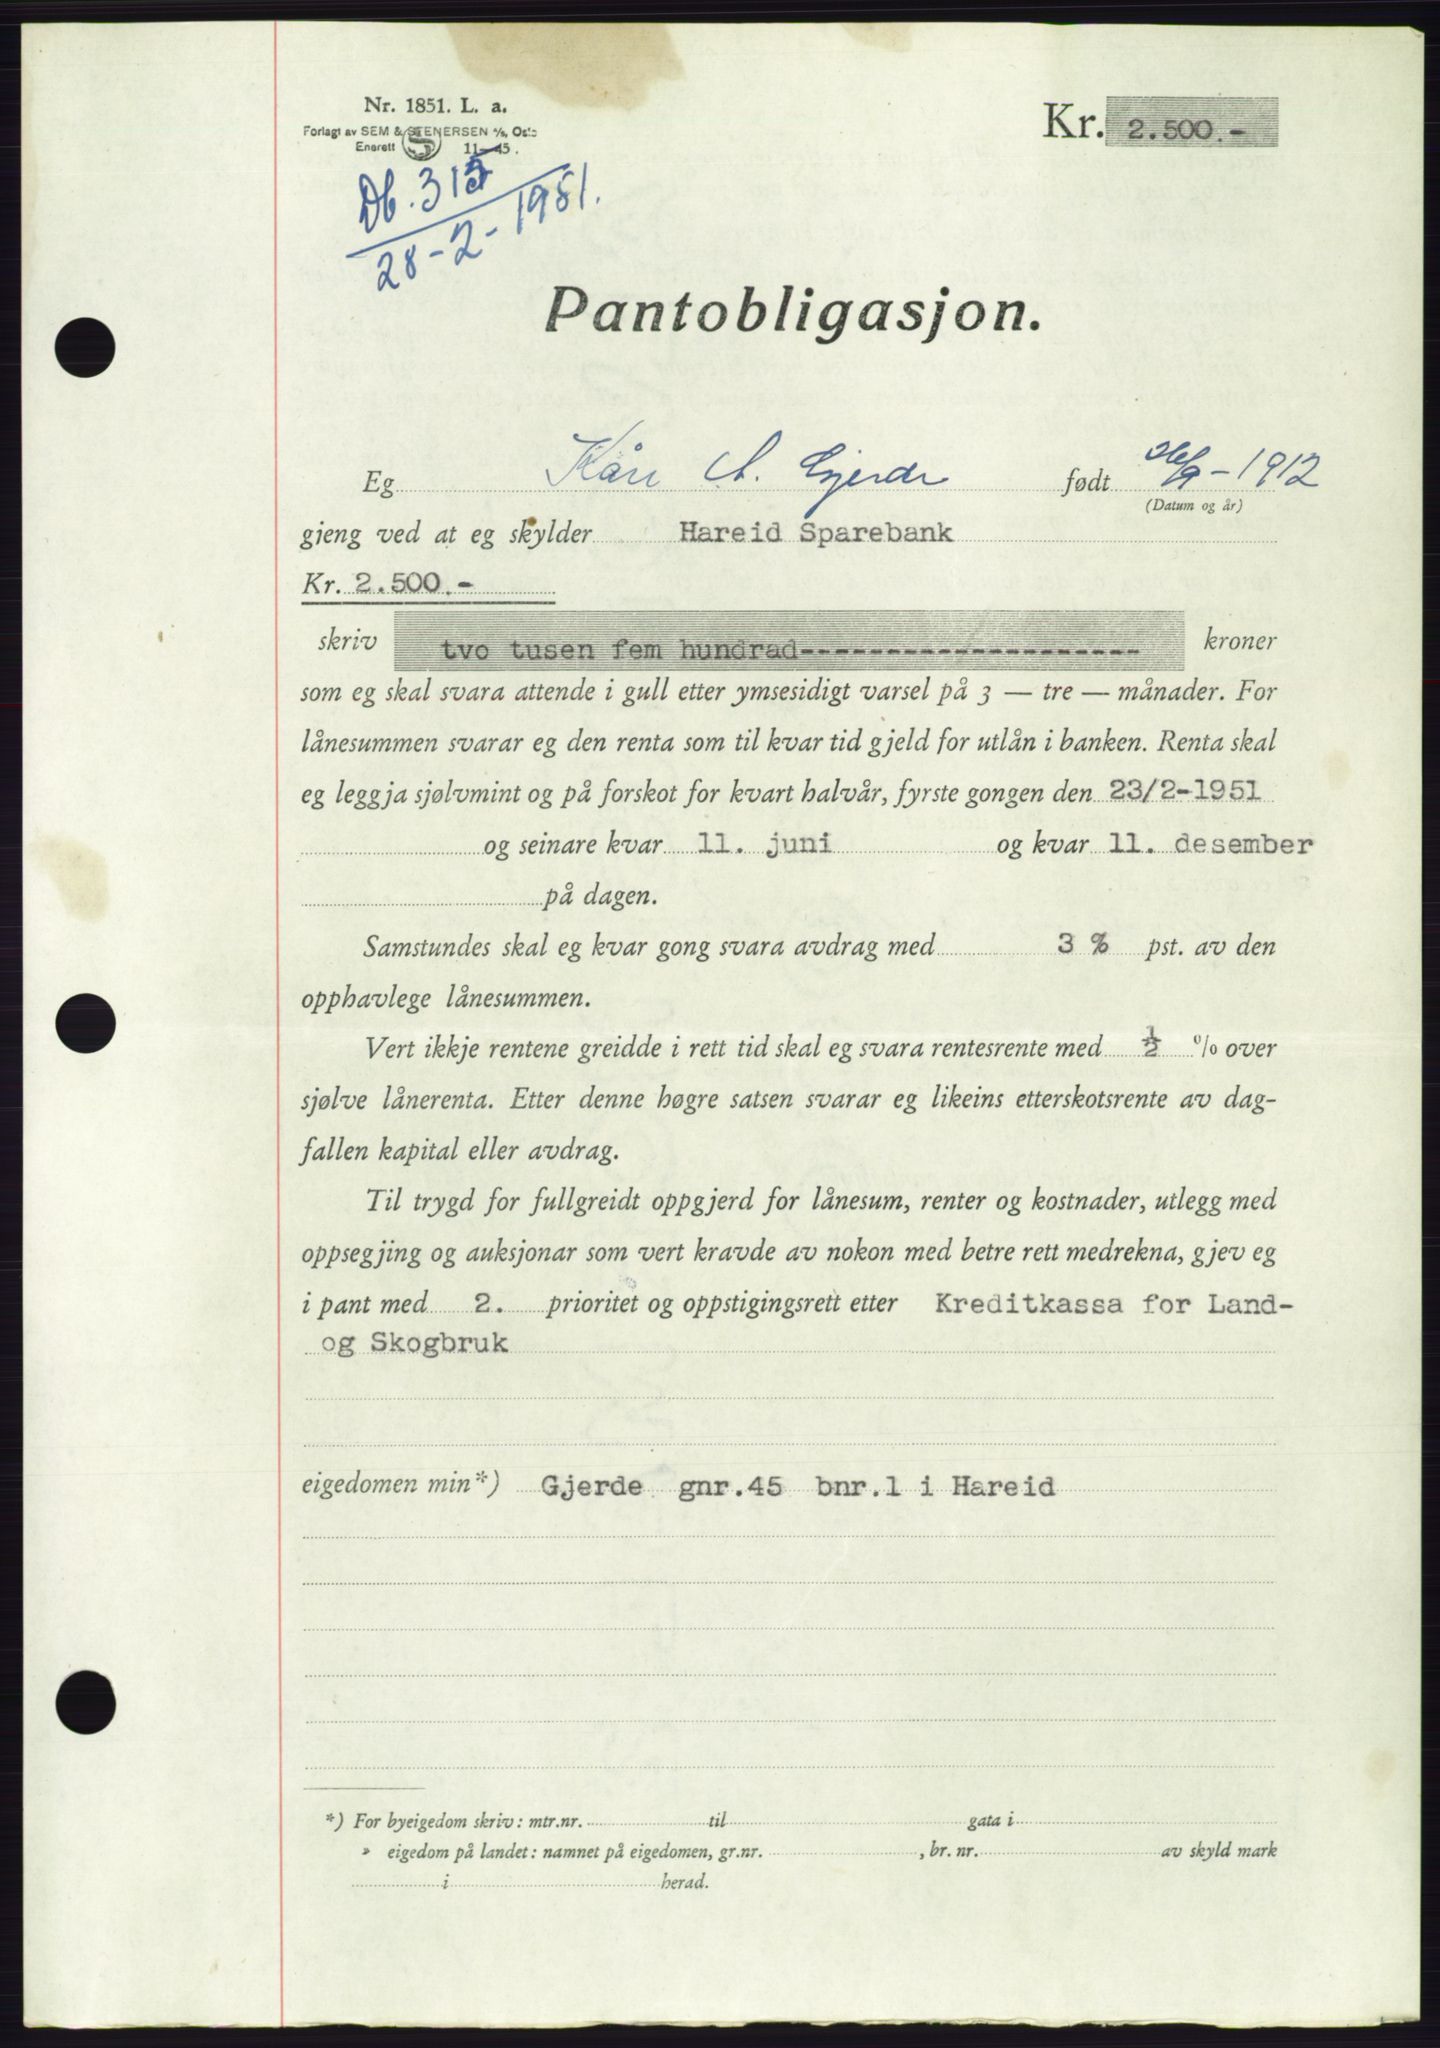 Nr. 1851. L. a.
Forlagt av SEM & STENERSEN A/s, Oslo
Enerett S 11-45.
Kr. 2.500.-
Db. 315
28-2-1951.
Pantobligasjon.
Eg Kåre A. Gjerde født 26/9-1912
(Datum og år)
gjeng ved at eg skylder Hareid Sparebank
Kr. 2.500.-
skriv tvo tusen fem hundrad-------------------- kroner
som eg skal svara attende i gull etter ymsesidigt varsel på 3 — tre — månader. For
lånesummen svarar eg den renta som til kvar tid gjeld for utlån i banken. Renta skal
eg leggja sjølvmint og på forskot for kvart halvår, fyrste gongen den 23/2-1951
og seinare kvar 11. juni og kvar 11. desember
på dagen.
Samstundes skal eg kvar gong svara avdrag med 3 % pst. av den
opphavlege lånesummen.
Vert ikkje rentene greidde i rett tid skal eg svara rentesrente med ½ % over
sjølve lånerenta. Etter denne høgre satsen svarar eg likeins etterskotsrente av dag-
fallen kapital eller avdrag.
Til trygd for fullgreidt oppgjerd for lånesum, renter og kostnader, utlegg med
oppsegjing og auksjonar som vert kravde av nokon med betre rett medrekna, gjev eg
i pant med 2. prioritet og oppstigingsrett etter Kreditkassa for Land-
og Skogbruk
eigedomen min*) Gjerde gnr.45 bnr.1 i Hareid
*) For byeigedom skriv: mtr.nr. til gata i
» eigedom på landet: namnet på eigedomen, gr.nr. , br. nr. av skyld mark
i herad.